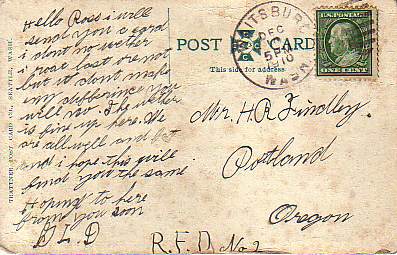 Hello Ross i will
send you a card
i dont no wether
i froat last or not
but it dont make
any differince you
will not. The wether
is fine up here. We
are all well and fat
and i hope this will
find you the same
Hoping to here
from you soon
D L D
THATINER POST CARD CO., SEATTLE, WASH.
POST CARD
This side for address
ITSBUR
DEC
5
WASH.
U.S. POSTAGE
ONE CENT
Mr. H R Findley.
Portland
Oregon
R.F.D. No 2